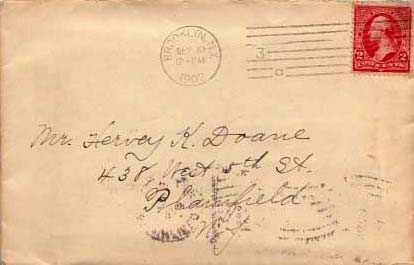 BROOKLYN, N.Y.
SEP 10
12-PM
1902
3
2 2
TWO CENTS
Mr. Hervey K. Doane
438 West 5th St.
Plainfield
N. J.